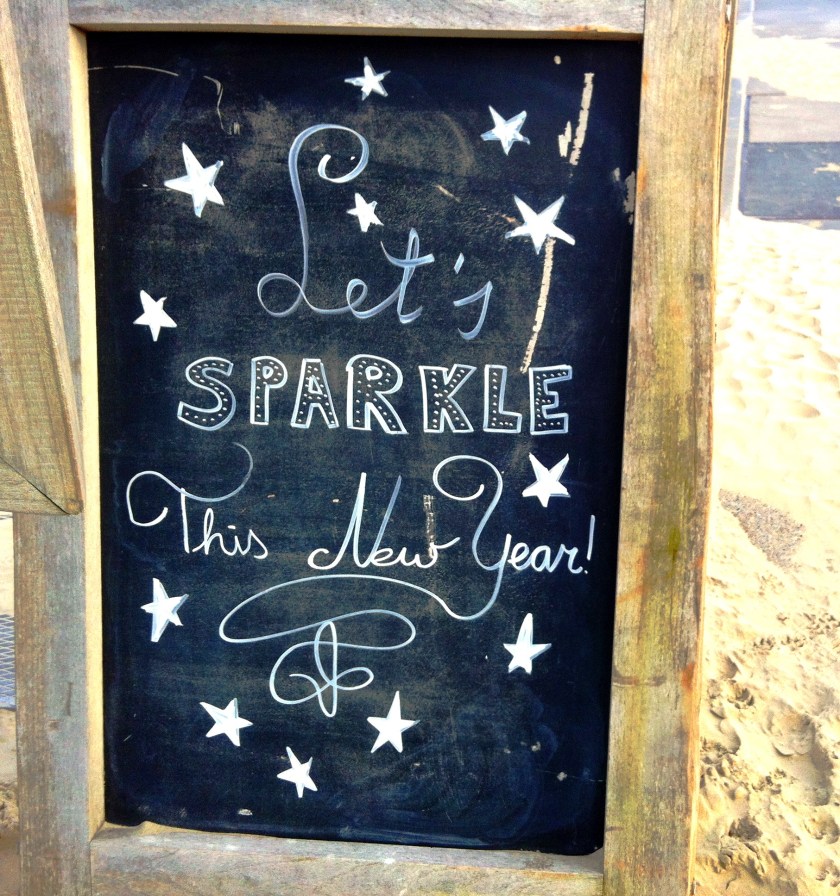 Let's
SPARKLE
This New Year!